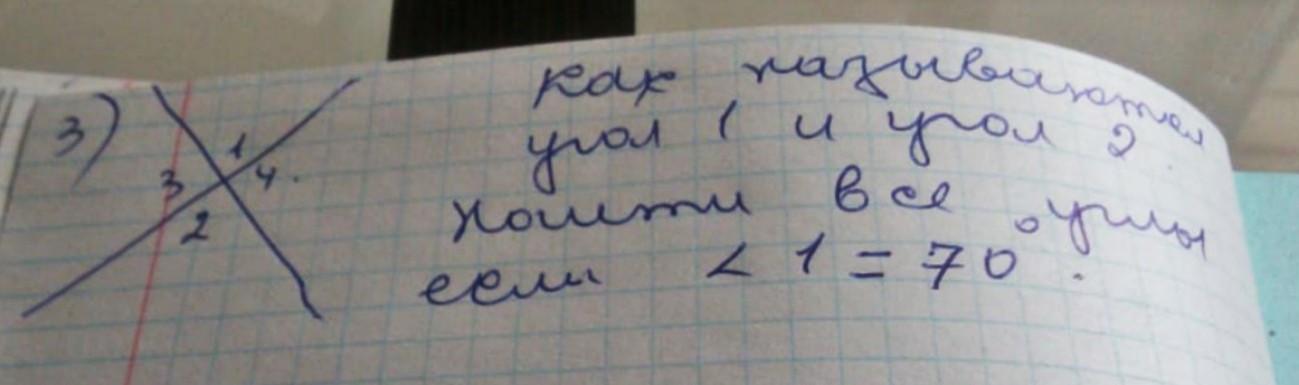 3)
1
3 4.
2
как называются
угол 1 и угол 2
найти все углы
если < 1 = 70°.